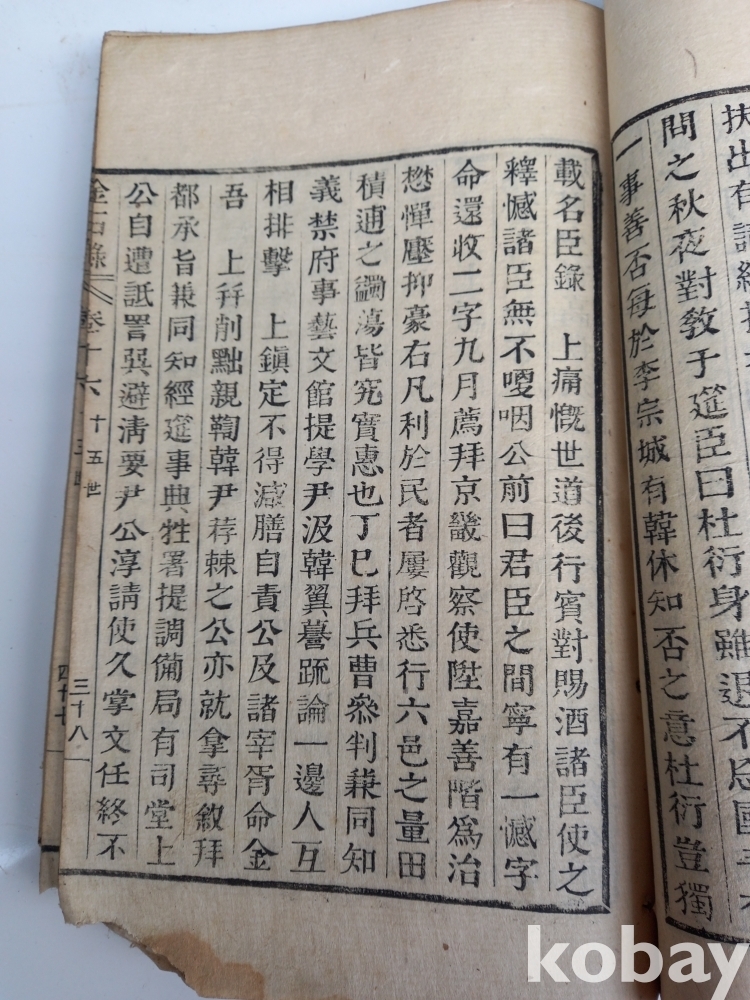 扶出有
問之秋夜對敎于筵臣曰杜衍身雖退不忘國
一事善否每於李宗城有韓休知否之意杜衍豈獨
載名臣錄　上痛慨世道後行賓對賜酒諸臣使之
釋憾諸臣無不嗄咽公前曰君臣之間寧有一憾字
命還收二字九月薦拜京畿觀察使陞嘉善階爲治
懋憚壓抑豪右凡利於民者屢啓悉行六邑之量田
積逋之蠲蕩皆究實惠也丁巳拜兵曹叅判兼同知
義禁府事藝文館提學尹汲韓翼謩疏論一邊人互
相排擊　上鎭定不得减膳自責公及諸宰胥命金
吾　上幷削黜親鞫韓尹荐棘之公亦就拿尋敘拜
都承旨兼同知經筵事典牲署提調備局有司堂上
公自遭詆詈巽避淸要尹公淳請使久掌文任終不
金石錄　卷十六　十五世　三十八
四十七
kobay